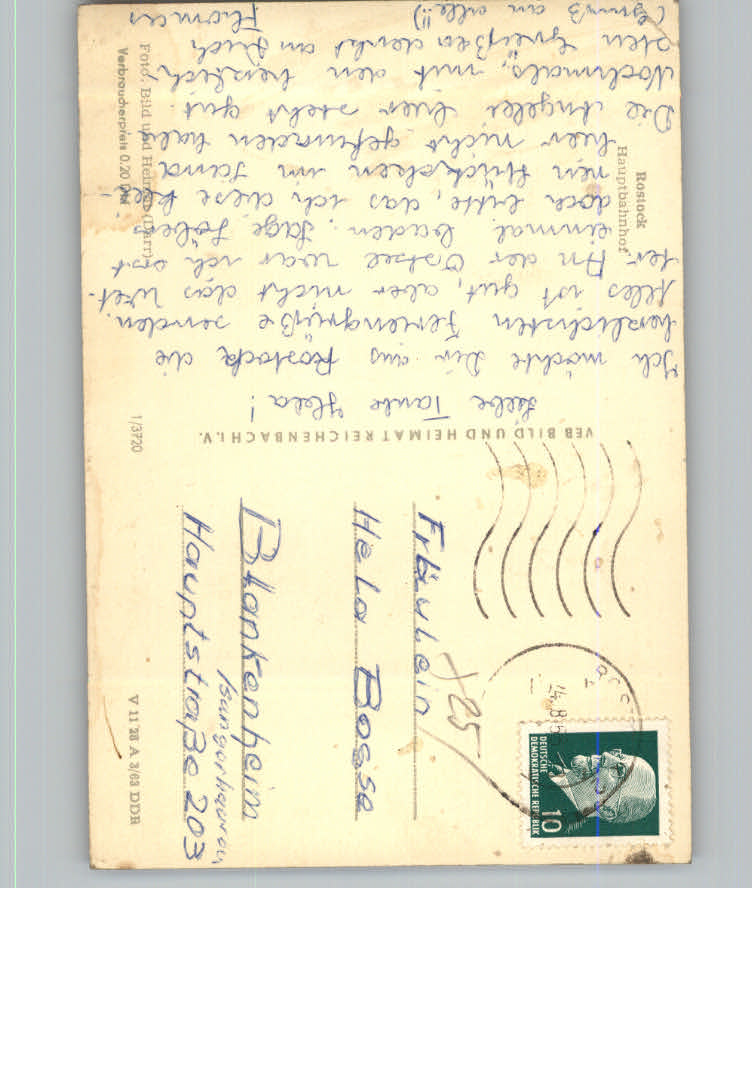 Rostock
Hauptbahnhof
Liebe Tante Hela!
Ich möchte Dir aus Rostock die
herzlichsten Feriengrüße senden.
Alles ist gut, aber nicht das Wet-
ter. An der Ostsee war ich erst
einmal baden. Sage
doch bitte, das ich diese
nein Stückchen im Sand
hier nicht gefunden habe
Die Angelei hier steht gut
Nochmals, mit den herzlich-
sten Grüßen denkt an Dich
Thomas
(Gruß an alle!!)
Foto: Bild und Heimat (Darr)
Verbraucherpreis 0.20 DM
VEB BILD UND HEIMAT REICHENBACH I. V.
1/3720
V 11 28 A 3/63 DDR
DEUTSCHE
DEMOKRATISCHE REPUBLIK
10
+25
Fräulein
Hela Bosse
Blankenheim
Hauptstraße 203